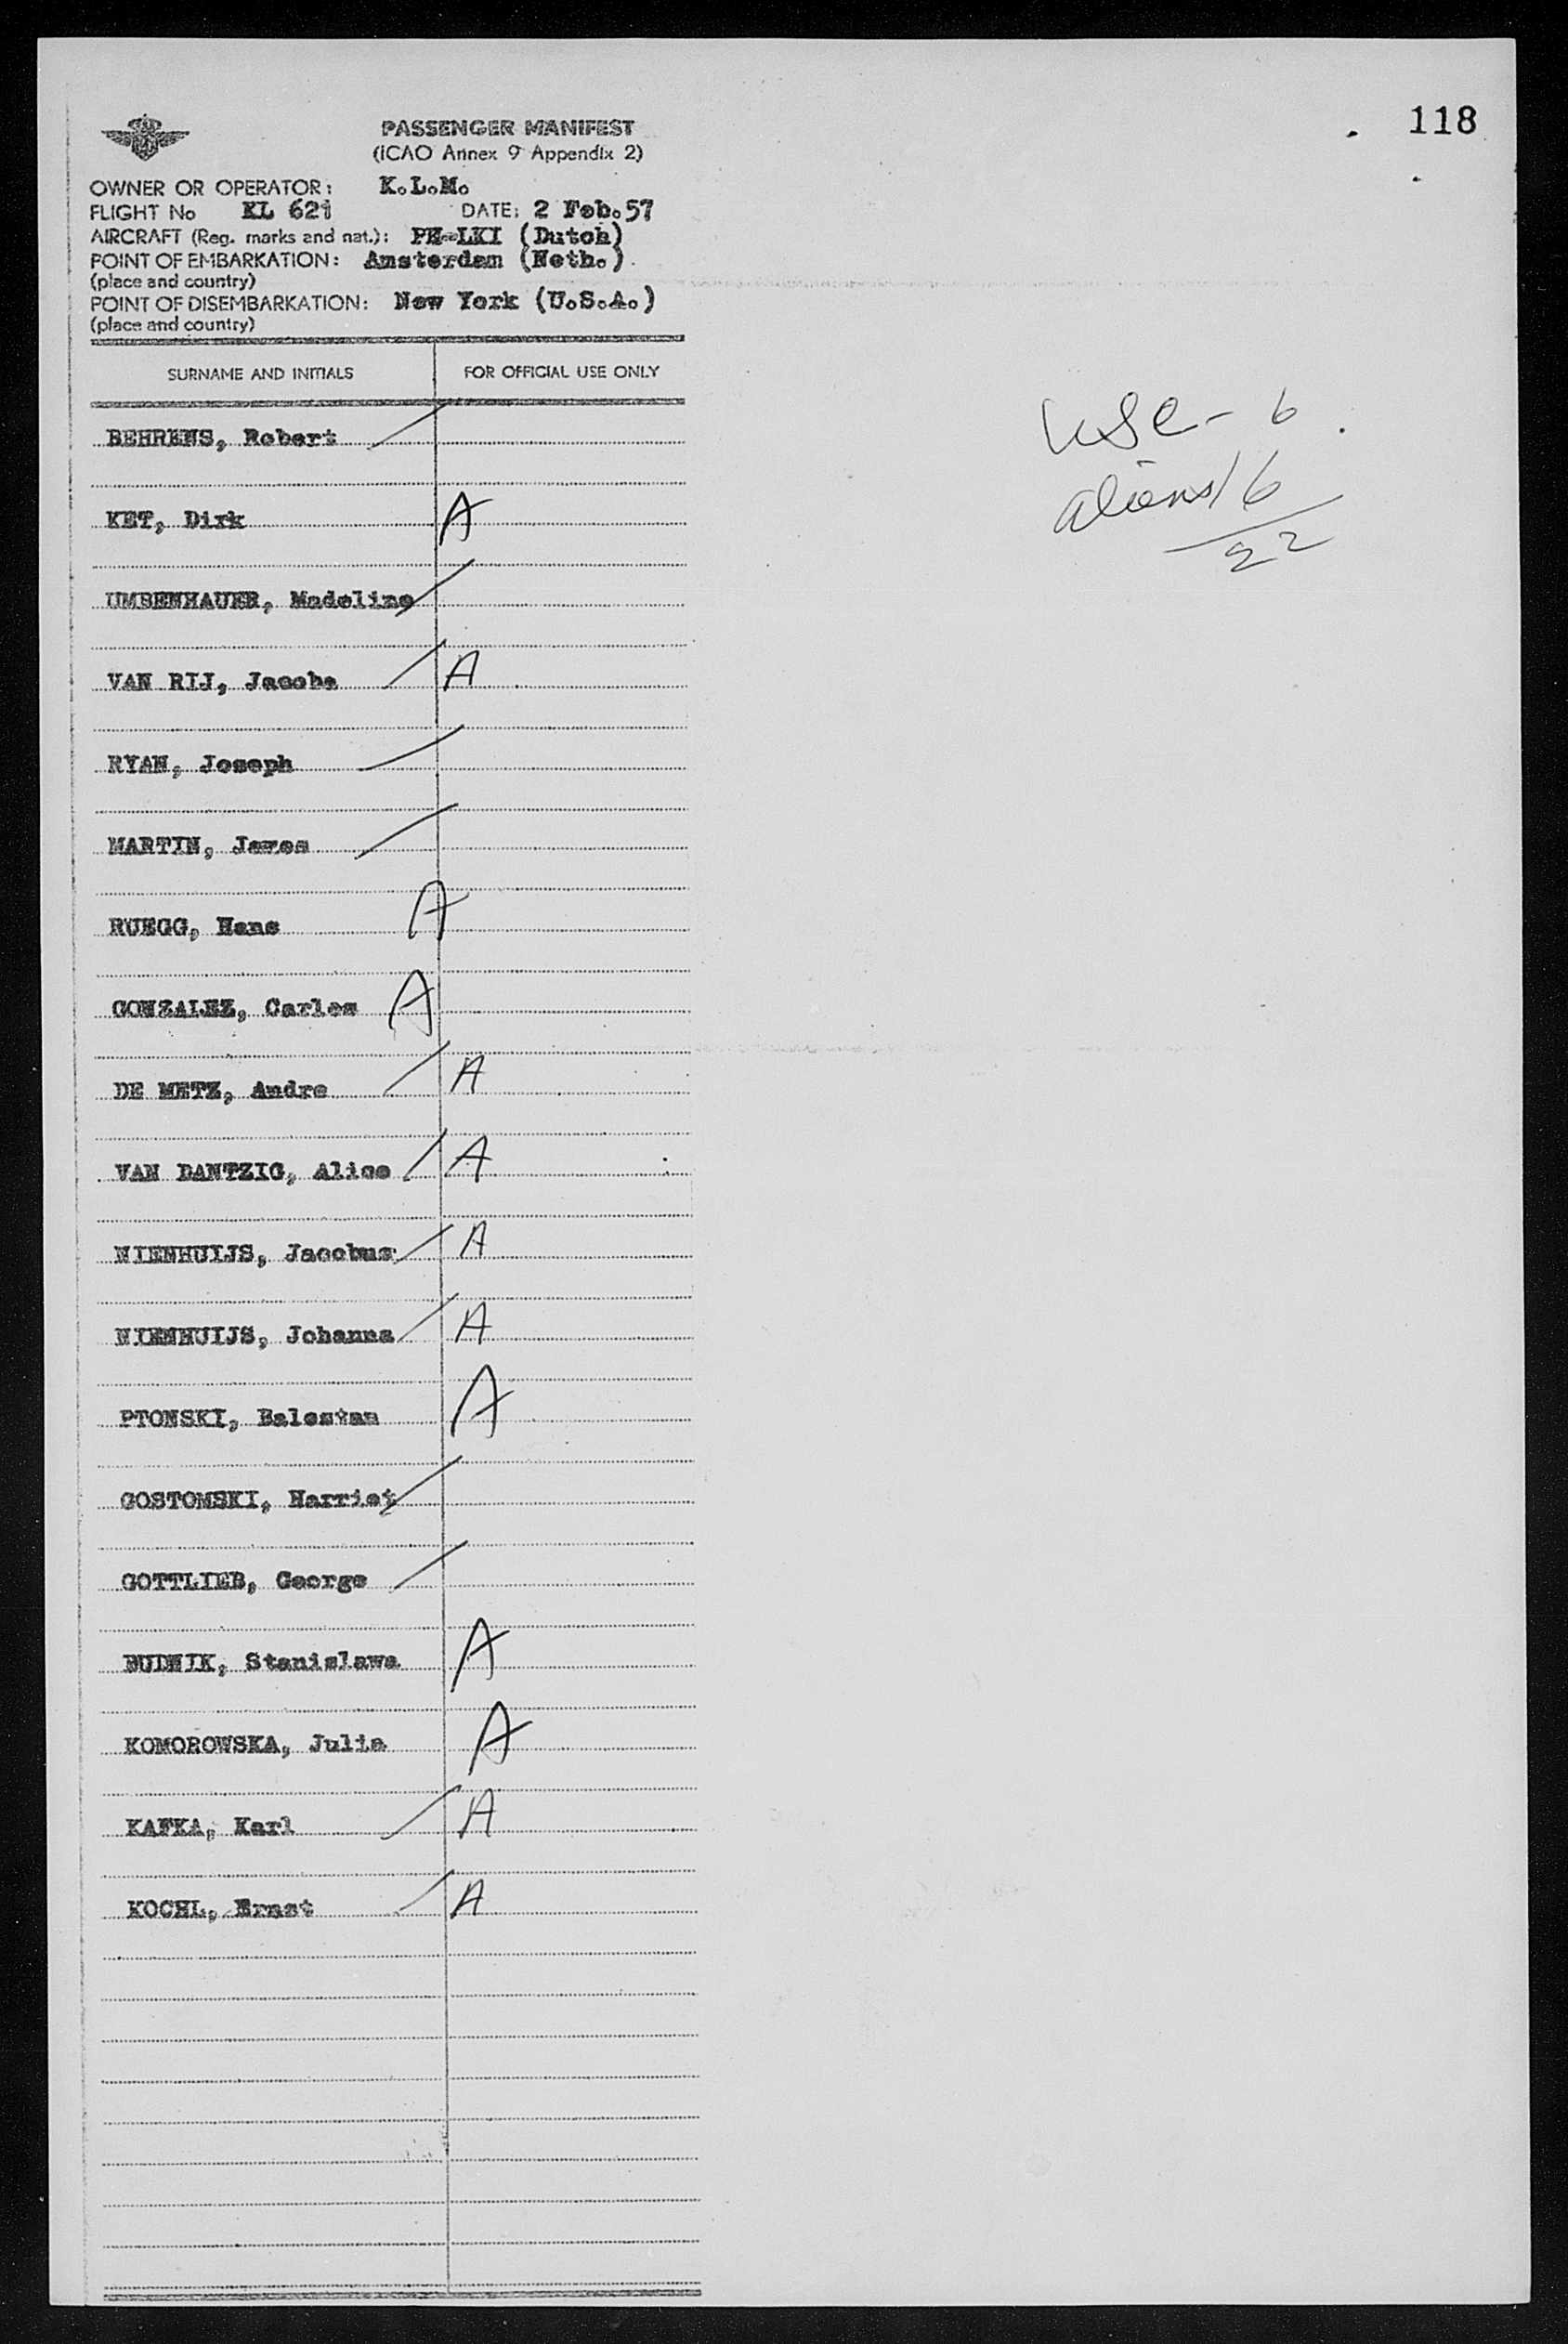 118
PASSENGER MANIFEST
(ICAO Annex 9 Appendix 2)
OWNER OR OPERATOR: K.L.M.
FLIGHT No KL 621 DATE: 2 Feb.57
AIRCRAFT (Reg. marks and nat.): PH-LKI (Dutch)
POINT OF EMBARKATION: Amsterdam (Neth.)
(place and country)
POINT OF DISEMBARKATION: New York (U.S.A.)
(place and country)
SURNAME AND INITIALS FOR OFFICIAL USE ONLY
BEHRENS, Robert
KET, Dirk A
UMBENHAUER, Madeline
VAN RIJ, Jacoba A
RYAN, Joseph
MARTIN, James
RUEGG, Hans A
GONZALEZ, Carlos A
DE METZ, Andre A
VAN DANTZIG, Alice A
NIENHUIJS, Jacobus A
NIENHUIJS, Johanna A
PTONSKI, A
GOSTOMSKI, Harriet
GOTTLIEB, George
BUDNIK, Stanislawa A
KOMOROWSKA, Julia A
KAFKA, Karl A
KOCHL, Ernst A
USC - 6
aliens 16
22